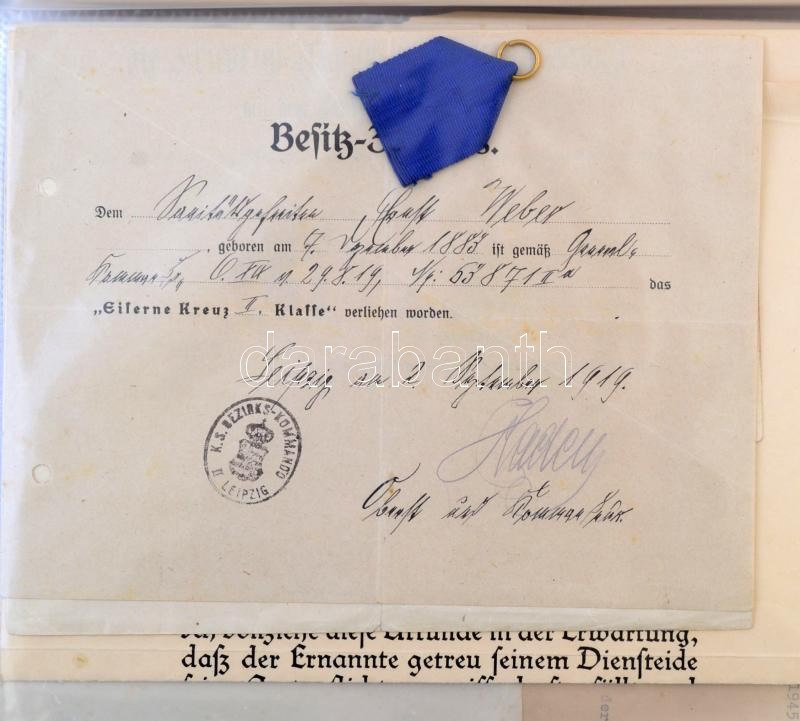 Besitz-
Dem Sanitätsgefreiten Ernst Weber
geboren am 7. Dezember 1883 ist gemäß
O. XIX v. 29.8.19, 53871 II a das
„Eiserne Kreuz II. Klasse“ verliehen worden.
darabanth
Leipzig am 2. September 1919.
K.S. BEZIRKS-KOMMANDO
II LEIPZIG
Oberst und Kommandeur.
Ich vollziehe diese Urkunde in der Erwartung,
daß der Ernannte getreu seinem Diensteide
1945
der